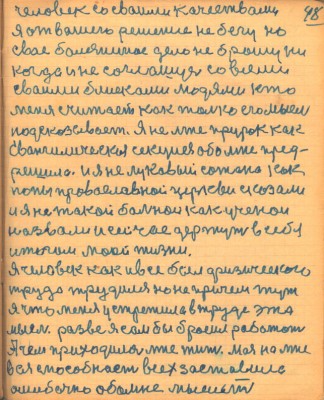 98
человек со своими качествами
я от вашего решение не бегу но
свае болезненое дело не брошу ни
когда и не соглашуся со всеми
своими близкими людями кто
меня считает как только его мысел
подсказывает. Я не мне прурок как
Евангилическая секция обо мне пред-
решила. и я не лукавый сотона как
попы провославной церкви сказали
и я не такой больной как ученои
назвали и сейчас держут в себе
итогом моей жизни.
Я человек как и все был физического
труда трудился но не причем тут
я что меня устретила в труде эта
мысел. разве я сам бы бросил работат
А чем приходилос мне жит. мая на мне
вся способност всех заставила
ошибочно обо мне мыслит